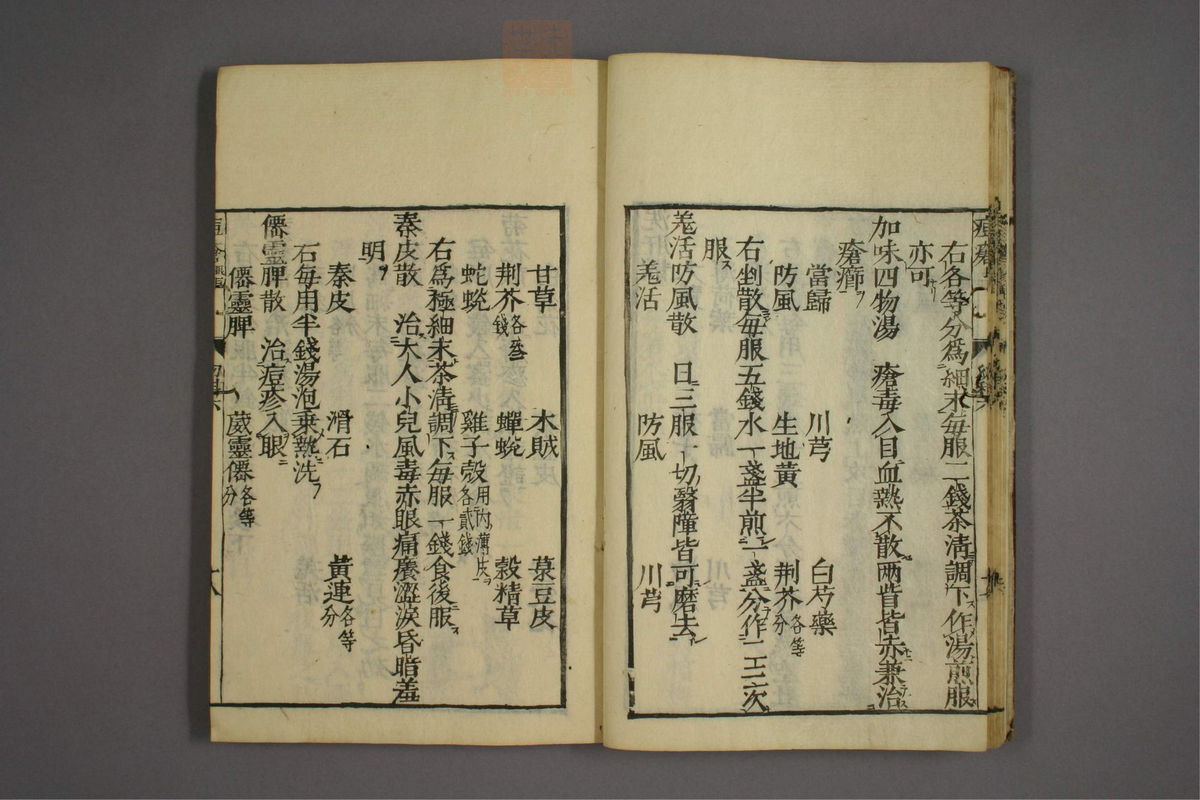 右各等分爲細末毎服二錢茶淸調下作湯煎服
亦可
加味四物湯 瘡毒入目血熱不散兩眥皆赤兼治
瘡癤
當歸 川芎 白芍藥
防風 生地黄 荆芥各等分
右剉散毎服五錢水一盞半煎一盞分作二三次
服
羗活防風散 日三服一切翳障皆可磨去
羗活 防風 川芎
甘草 木賊 菉豆皮
荆芥各 錢 蟬蛻 穀精草
蛇蛻 雞子殼用内薄皮各貳錢
右爲極細末茶淸調下毎服一錢食後服
秦皮散 治大人小兒風毒赤眼痛癢澀淚昏暗羞
明
秦皮 滑石 黃連各等分
右毎用半錢湯泡乗熱洗
僊靈脾散 治痘疹入眼
僊靈脾 葳靈僊各等分